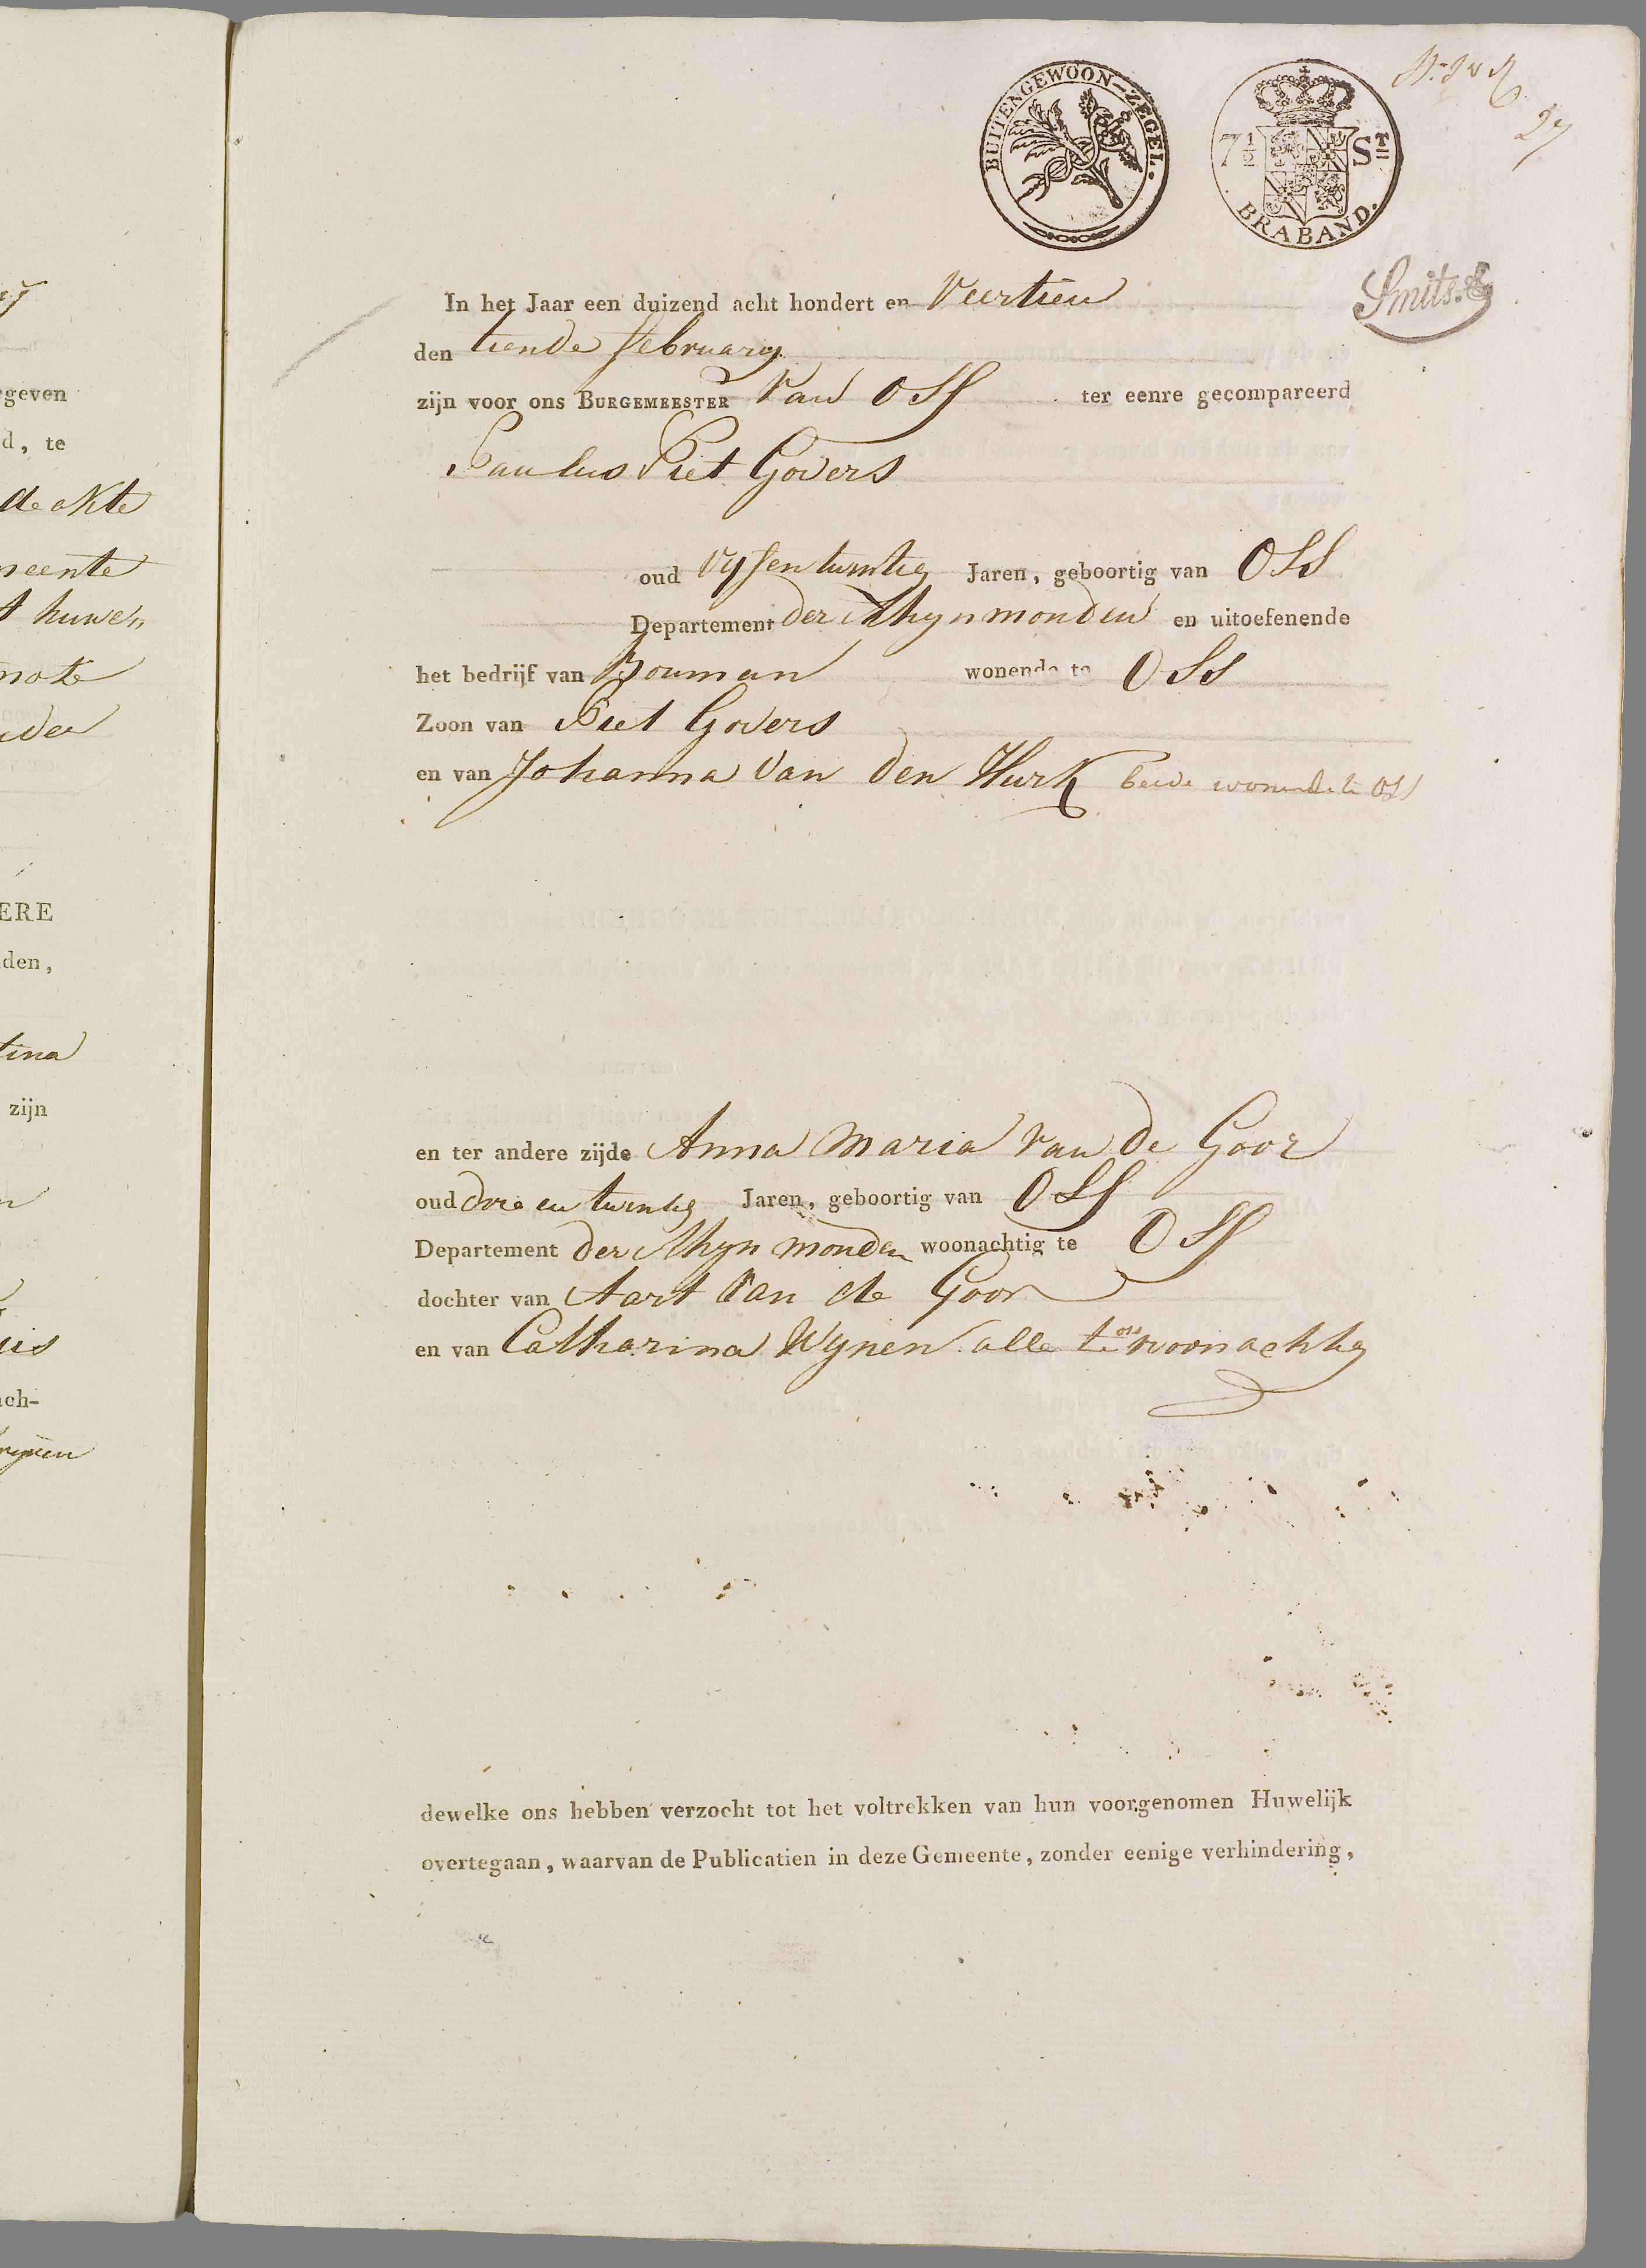 ij
rgeven
d, te
de akte
meente
t huwen
note
ider
ERE
den,
tina
zijn
uis
ach-
BUITENGEWOON-ZEGEL.
7½ ST
BRABAND.
27
Smits
In het Jaar een duizend acht hondert en Veertien
den tiende february
zijn voor ons BURGEMEESTER van Oss ter eenre gecompareerd
Paulus Piet Govers
oud vyfentwintig Jaren, geboortig van Oss
Departement der Rhynmonden en uitoefenende
het bedrijf van Bouman wonende te Oss
Zoon van Piet Govers
en van Johanna van den Hurk beide wonende te Oss
en ter andere zijde Anna Maria van de Goor
oud drie en twintig Jaren, geboortig van Oss
Departement der Rhyn monden woonachtig te Oss
dochter van Aart van de Goor
en van Catharina Wynen alle te oss woonachtig
dewelke ons hebben verzocht tot het voltrekken van hun voorgenomen Huwelijk
overtegaan, waarvan de Publicatien in deze Gemeente, zonder eenige verhindering,